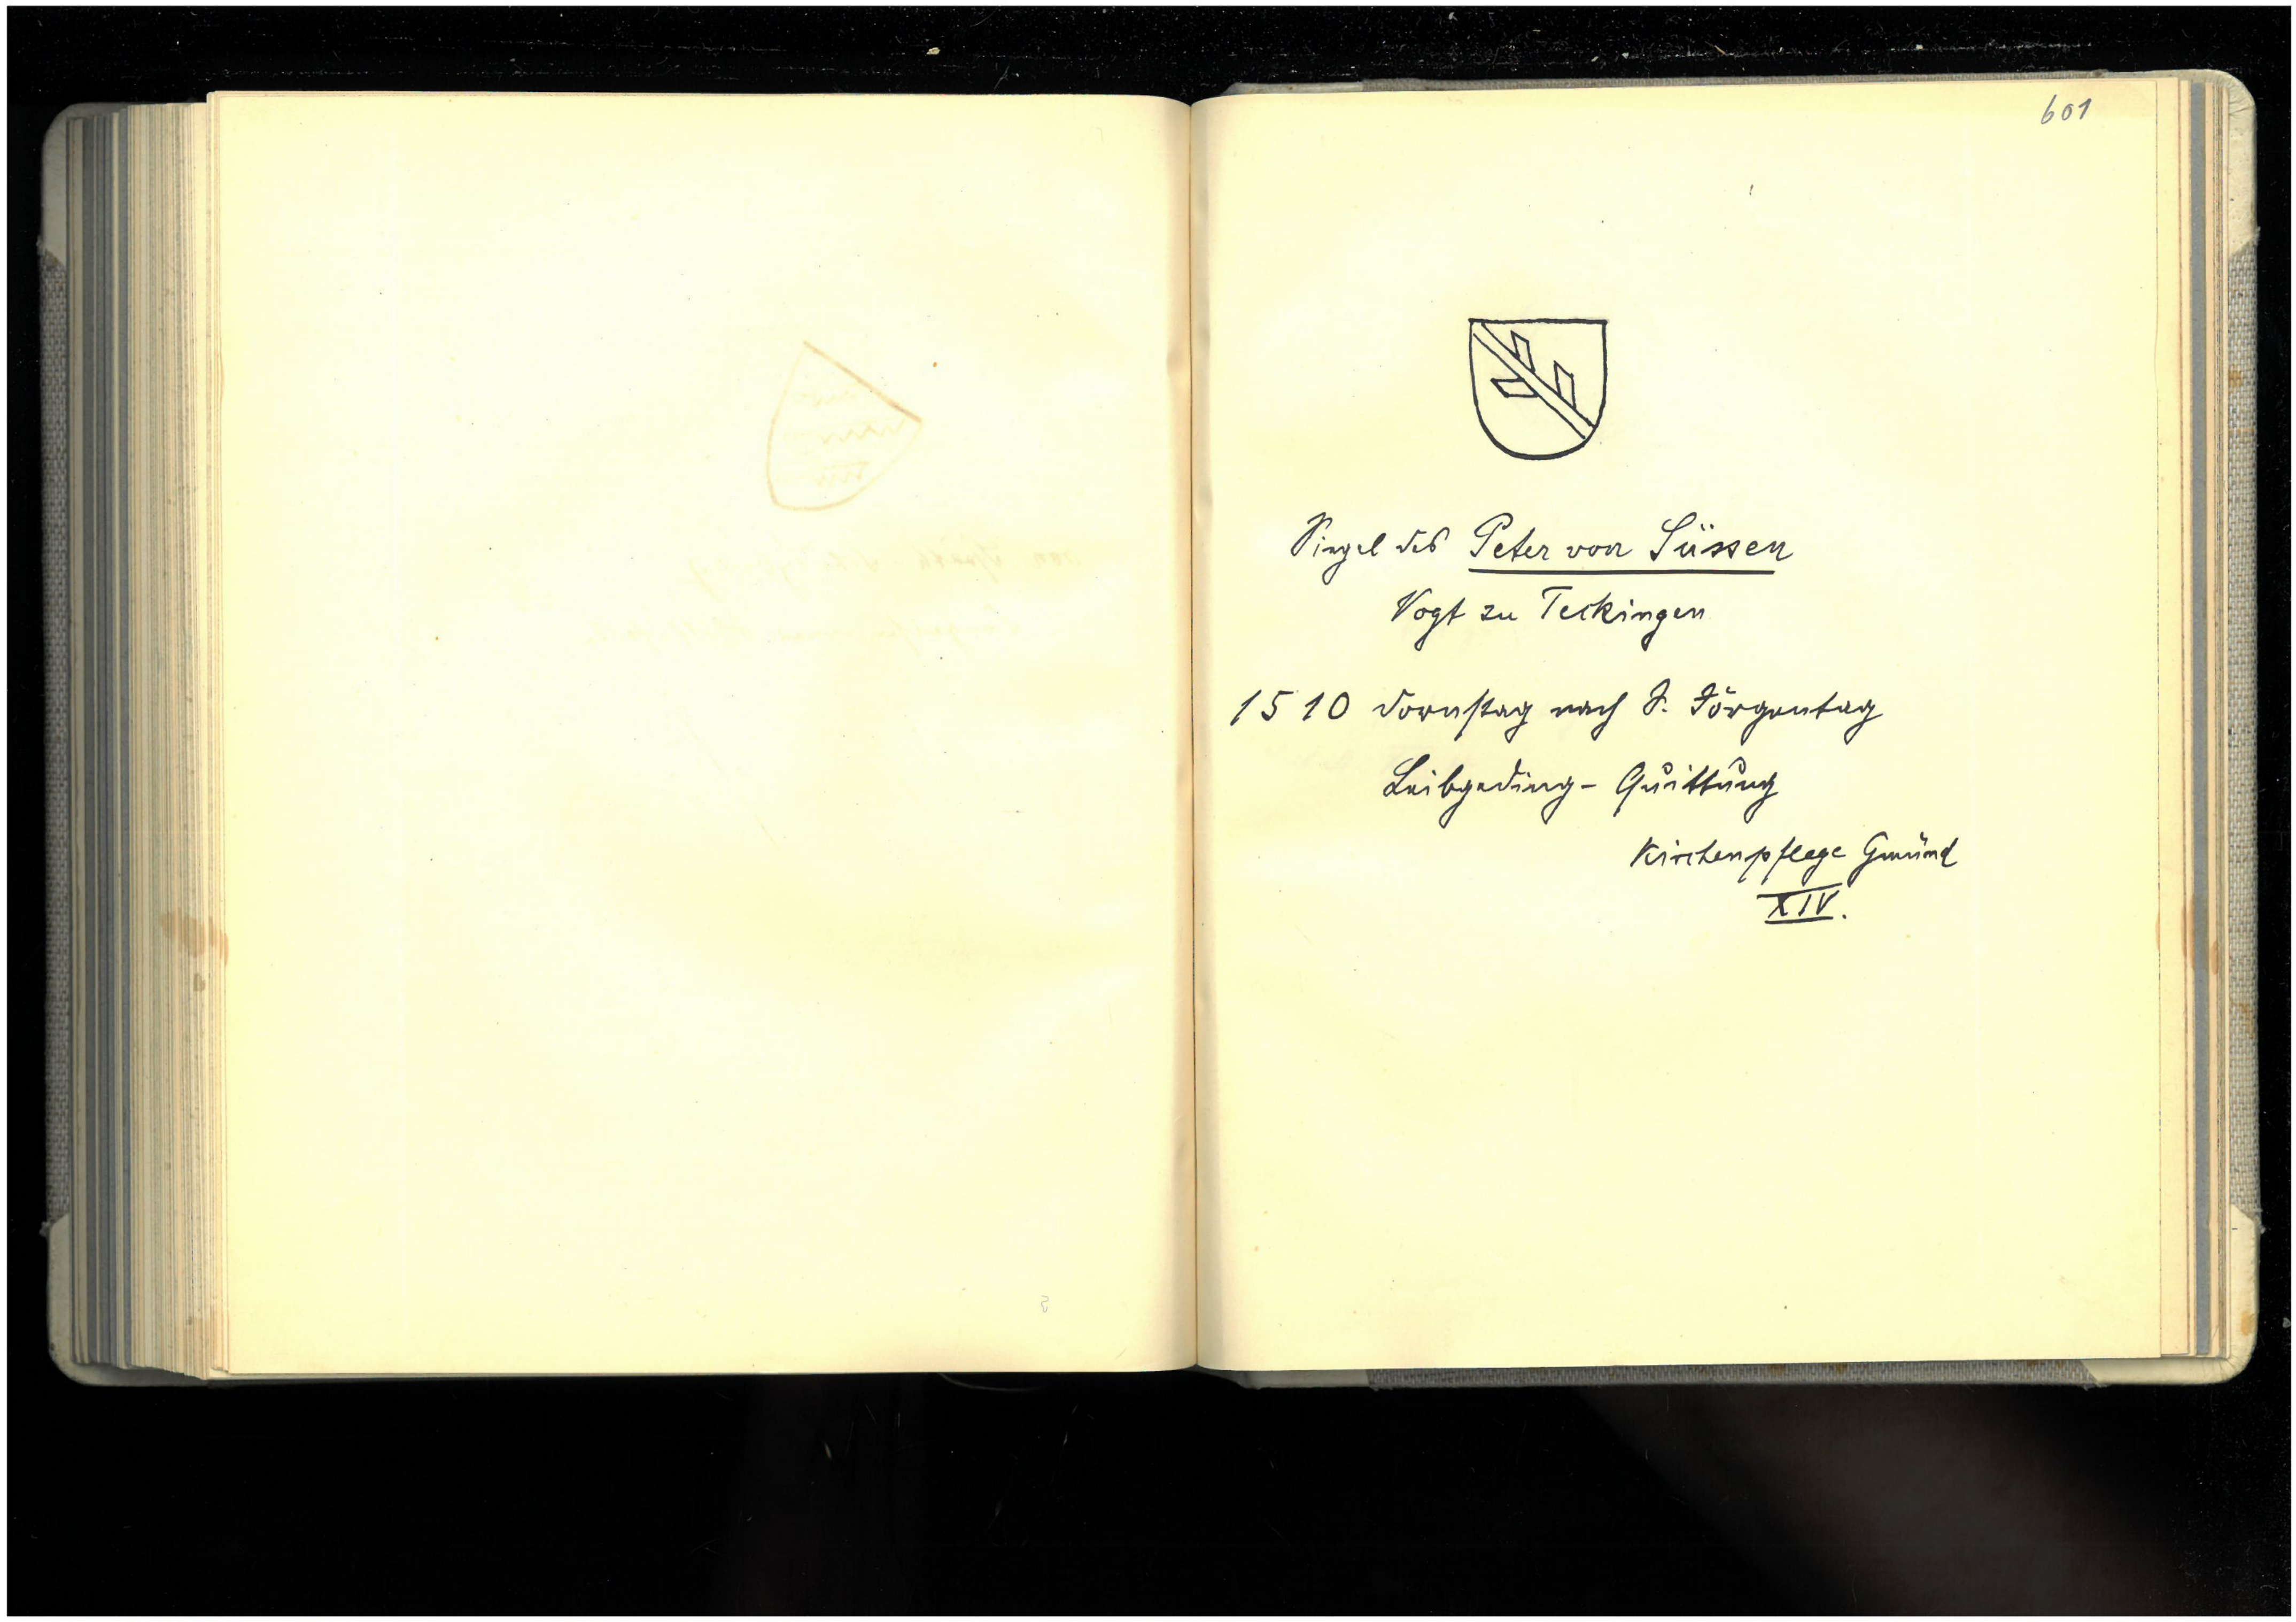 601
Siegel des Peter von Süssen
Vogt zu Teckingen
1510 Dornstag nach S. Jörgentag
Leibgeding- Quittung
Kirchenpflege Gmünd
XIV.